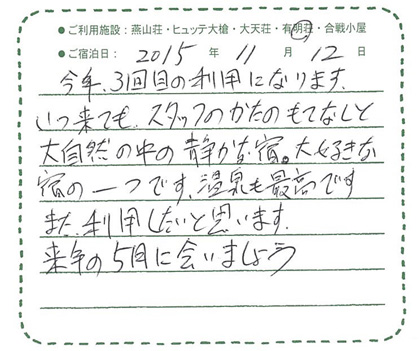 ●ご利用施設:燕山荘・ヒュッテ大槍・大天荘・有明荘・合戦小屋
●ご宿泊日: 2015 年 11 月 12 日
今年、3回目の利用になります、
いつ来ても、スタッフのかたのもてなしと
大自然の中の静かな宿。大好きな
宿の一つです、温泉も最高です
また、利用したいと思います、
来年の5月に会いましょう